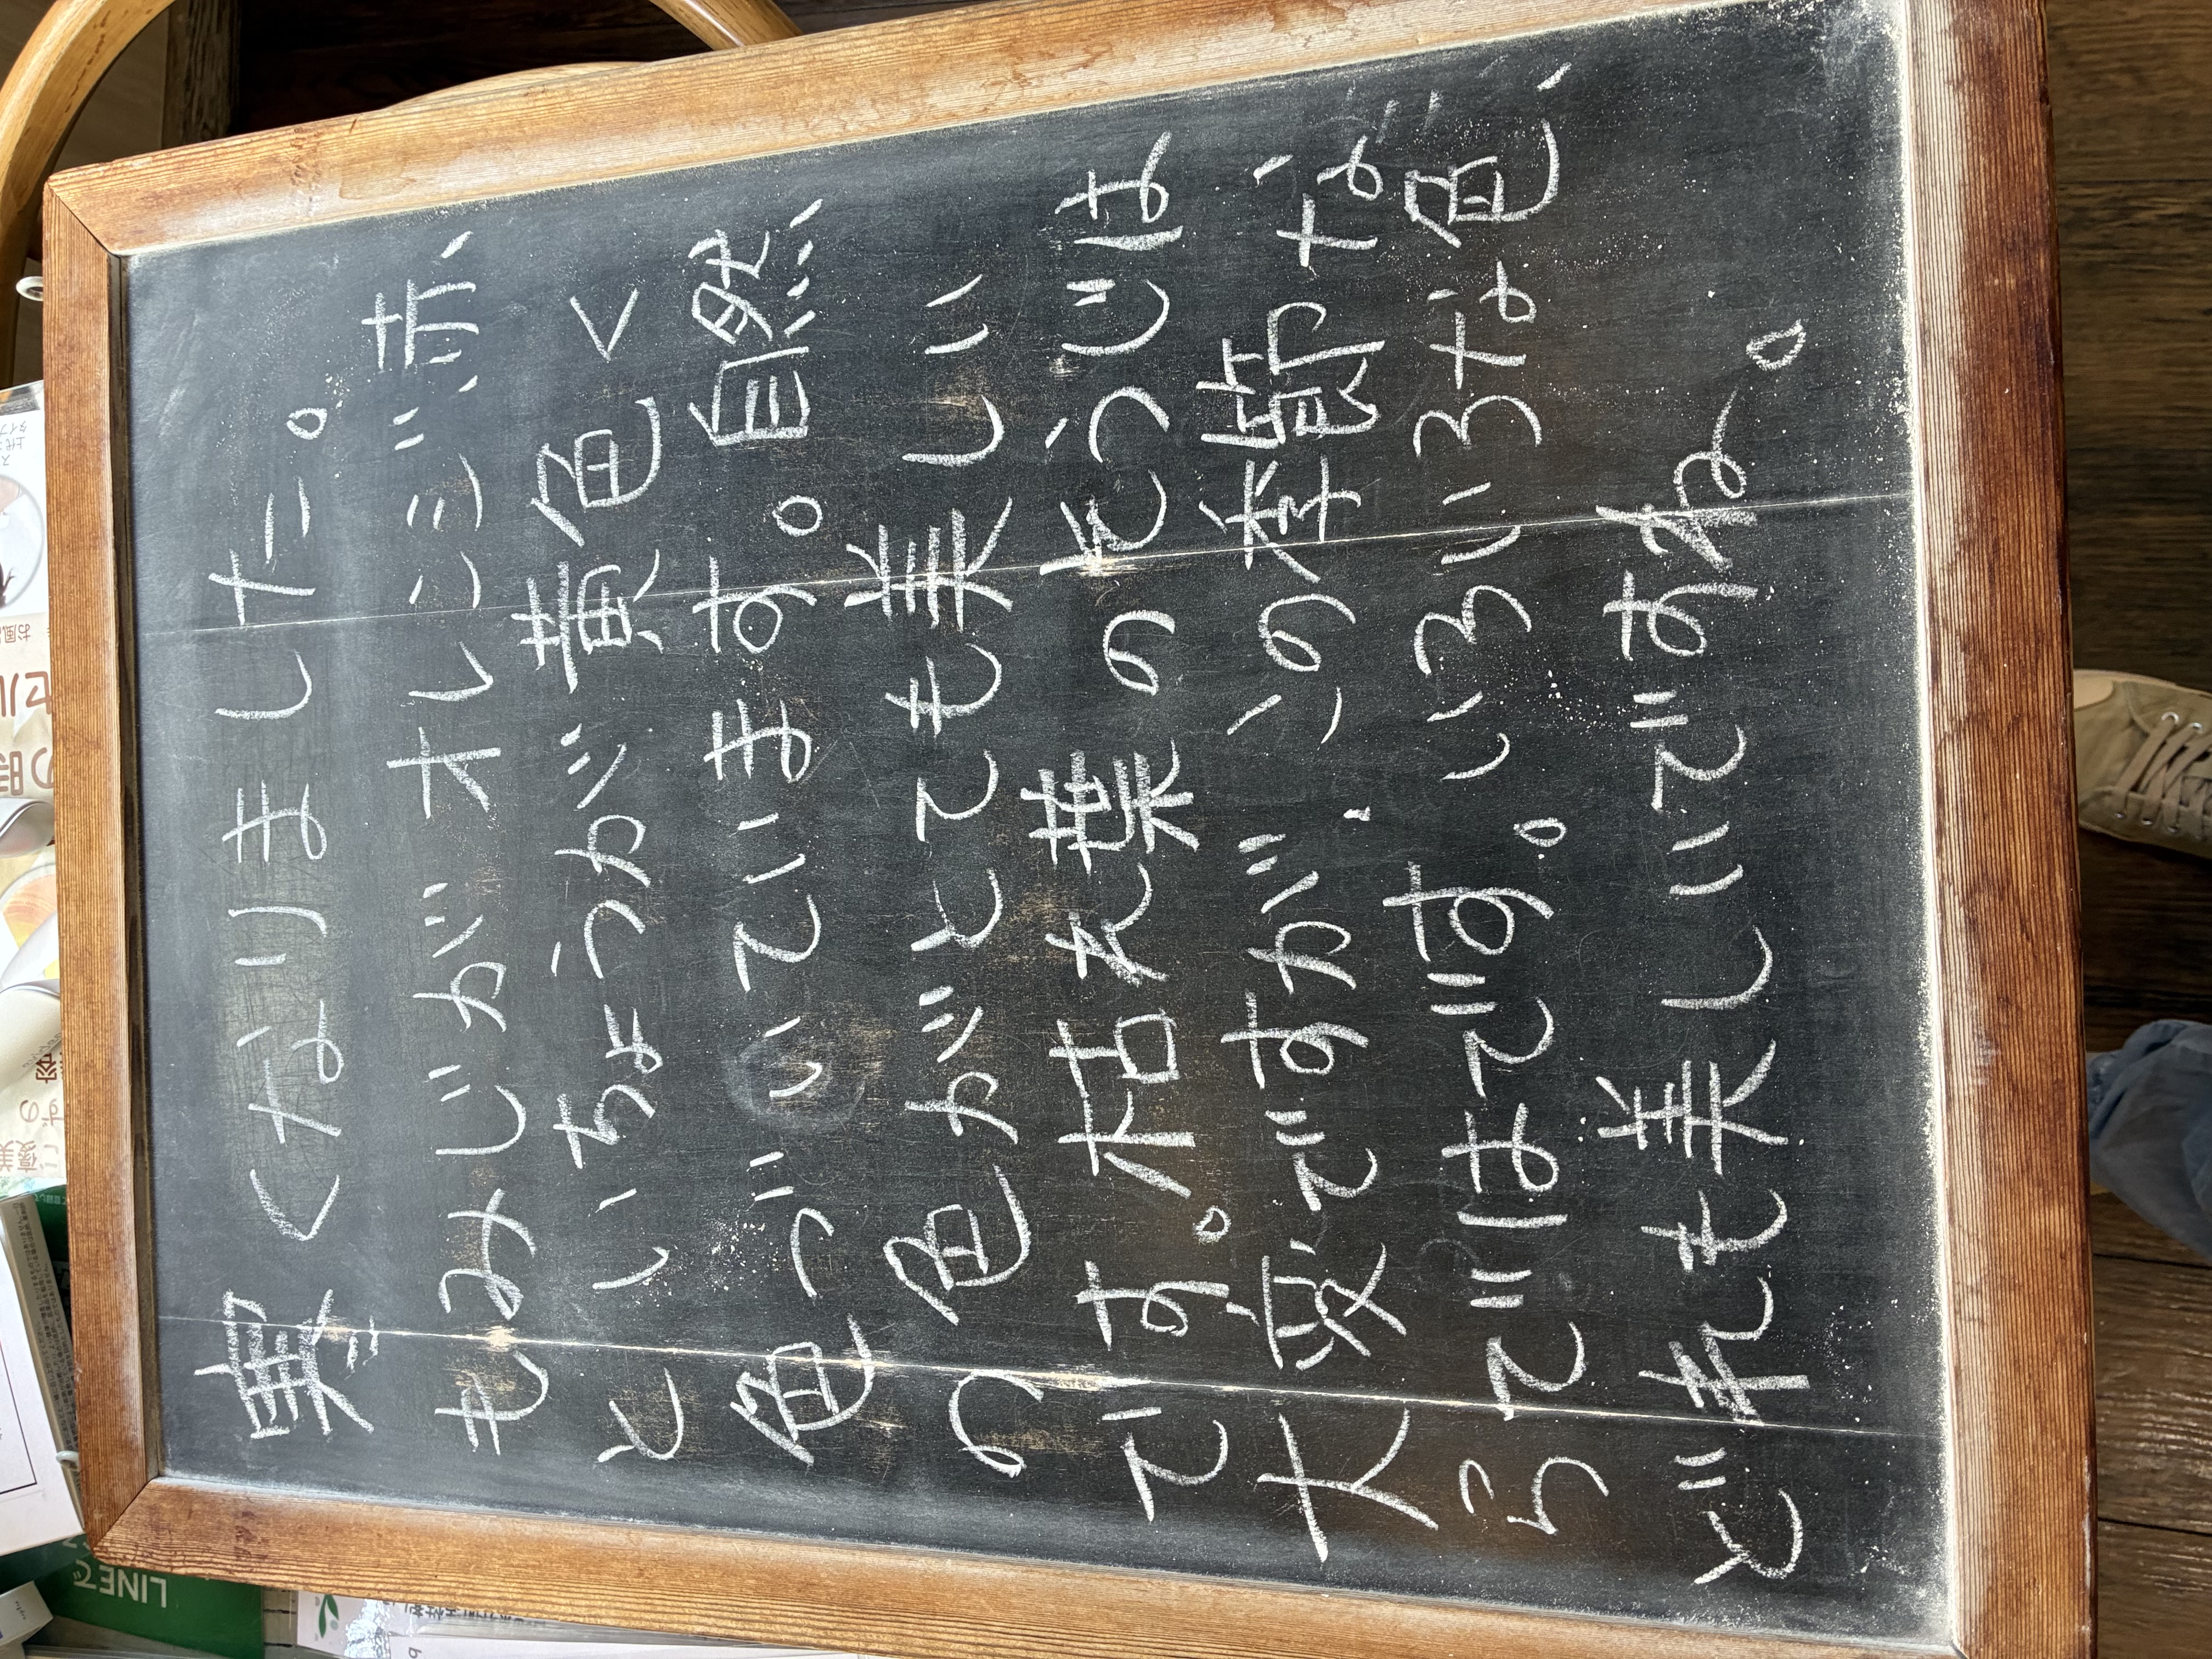 寒くなりました。
もみじがオレンジ、赤、
といちょうが黄色く
色づいています。自然、
の色がとても美しい
です。枯れ葉のそうじは
大変ですが、この季節な
らではです。いろいろな色、
どれも美しいですね。
LINEで